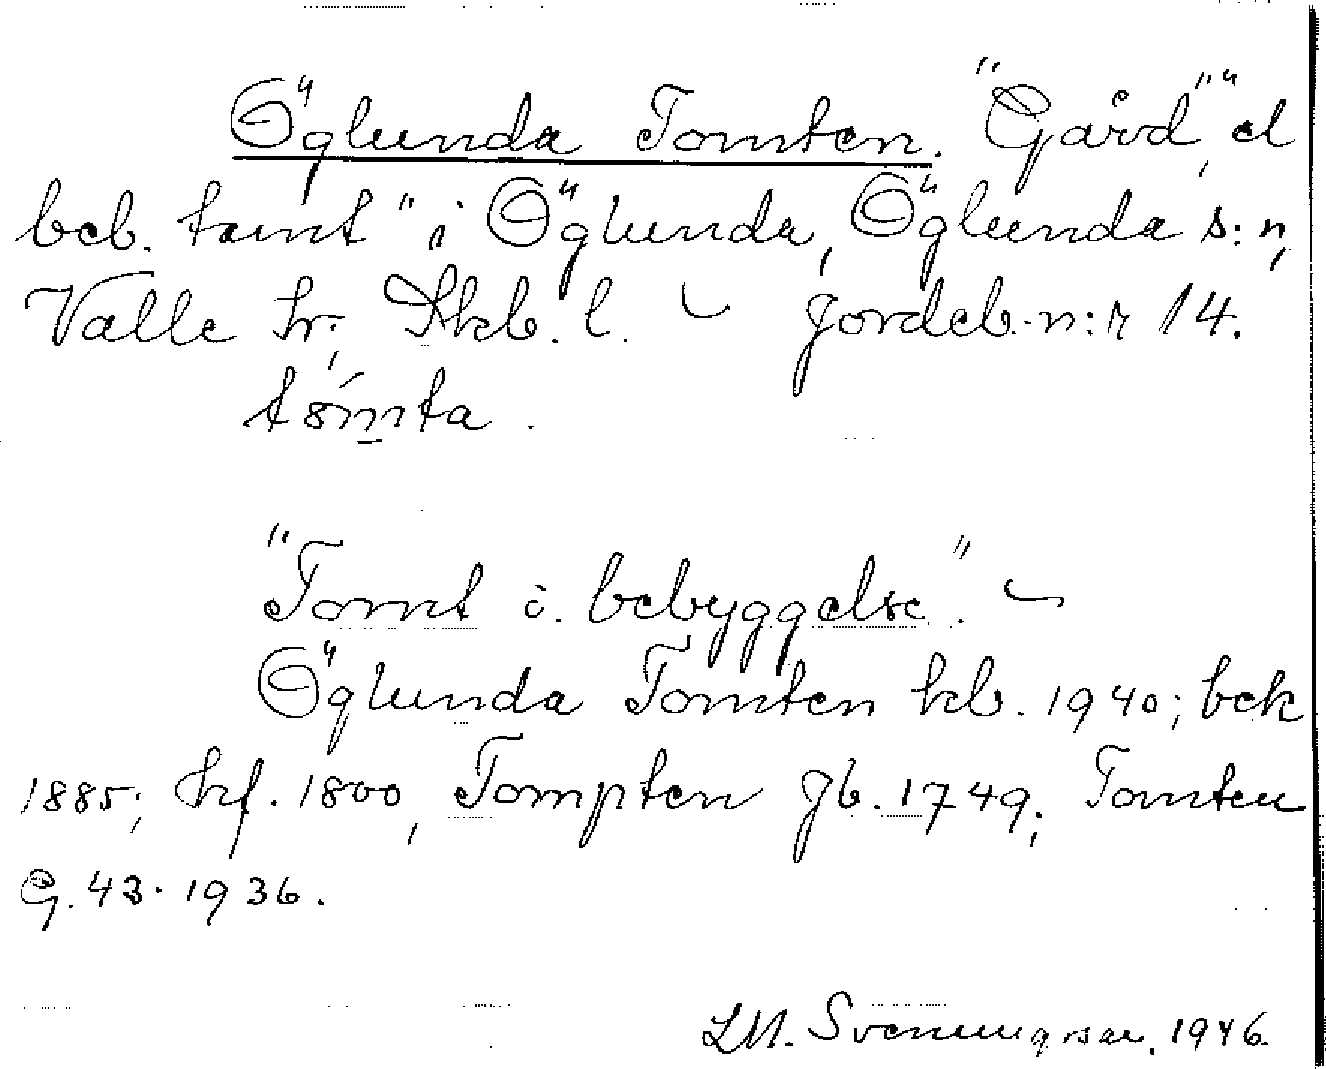 Öglunda Tomten. "Gård", "el
beb. tomt" i Öglunda, Öglunda s:n,
Valle hr, Skb. l. – Jordeb.-n:r 14.
tomta.
"Tomt i. bebyggelse". –
Öglunda Tomten kb. 1940; bek
1885; hf. 1800, Tompten Jb. 1749; Tomten
G. 43. 1936.
LM. Svenungsson. 1946.